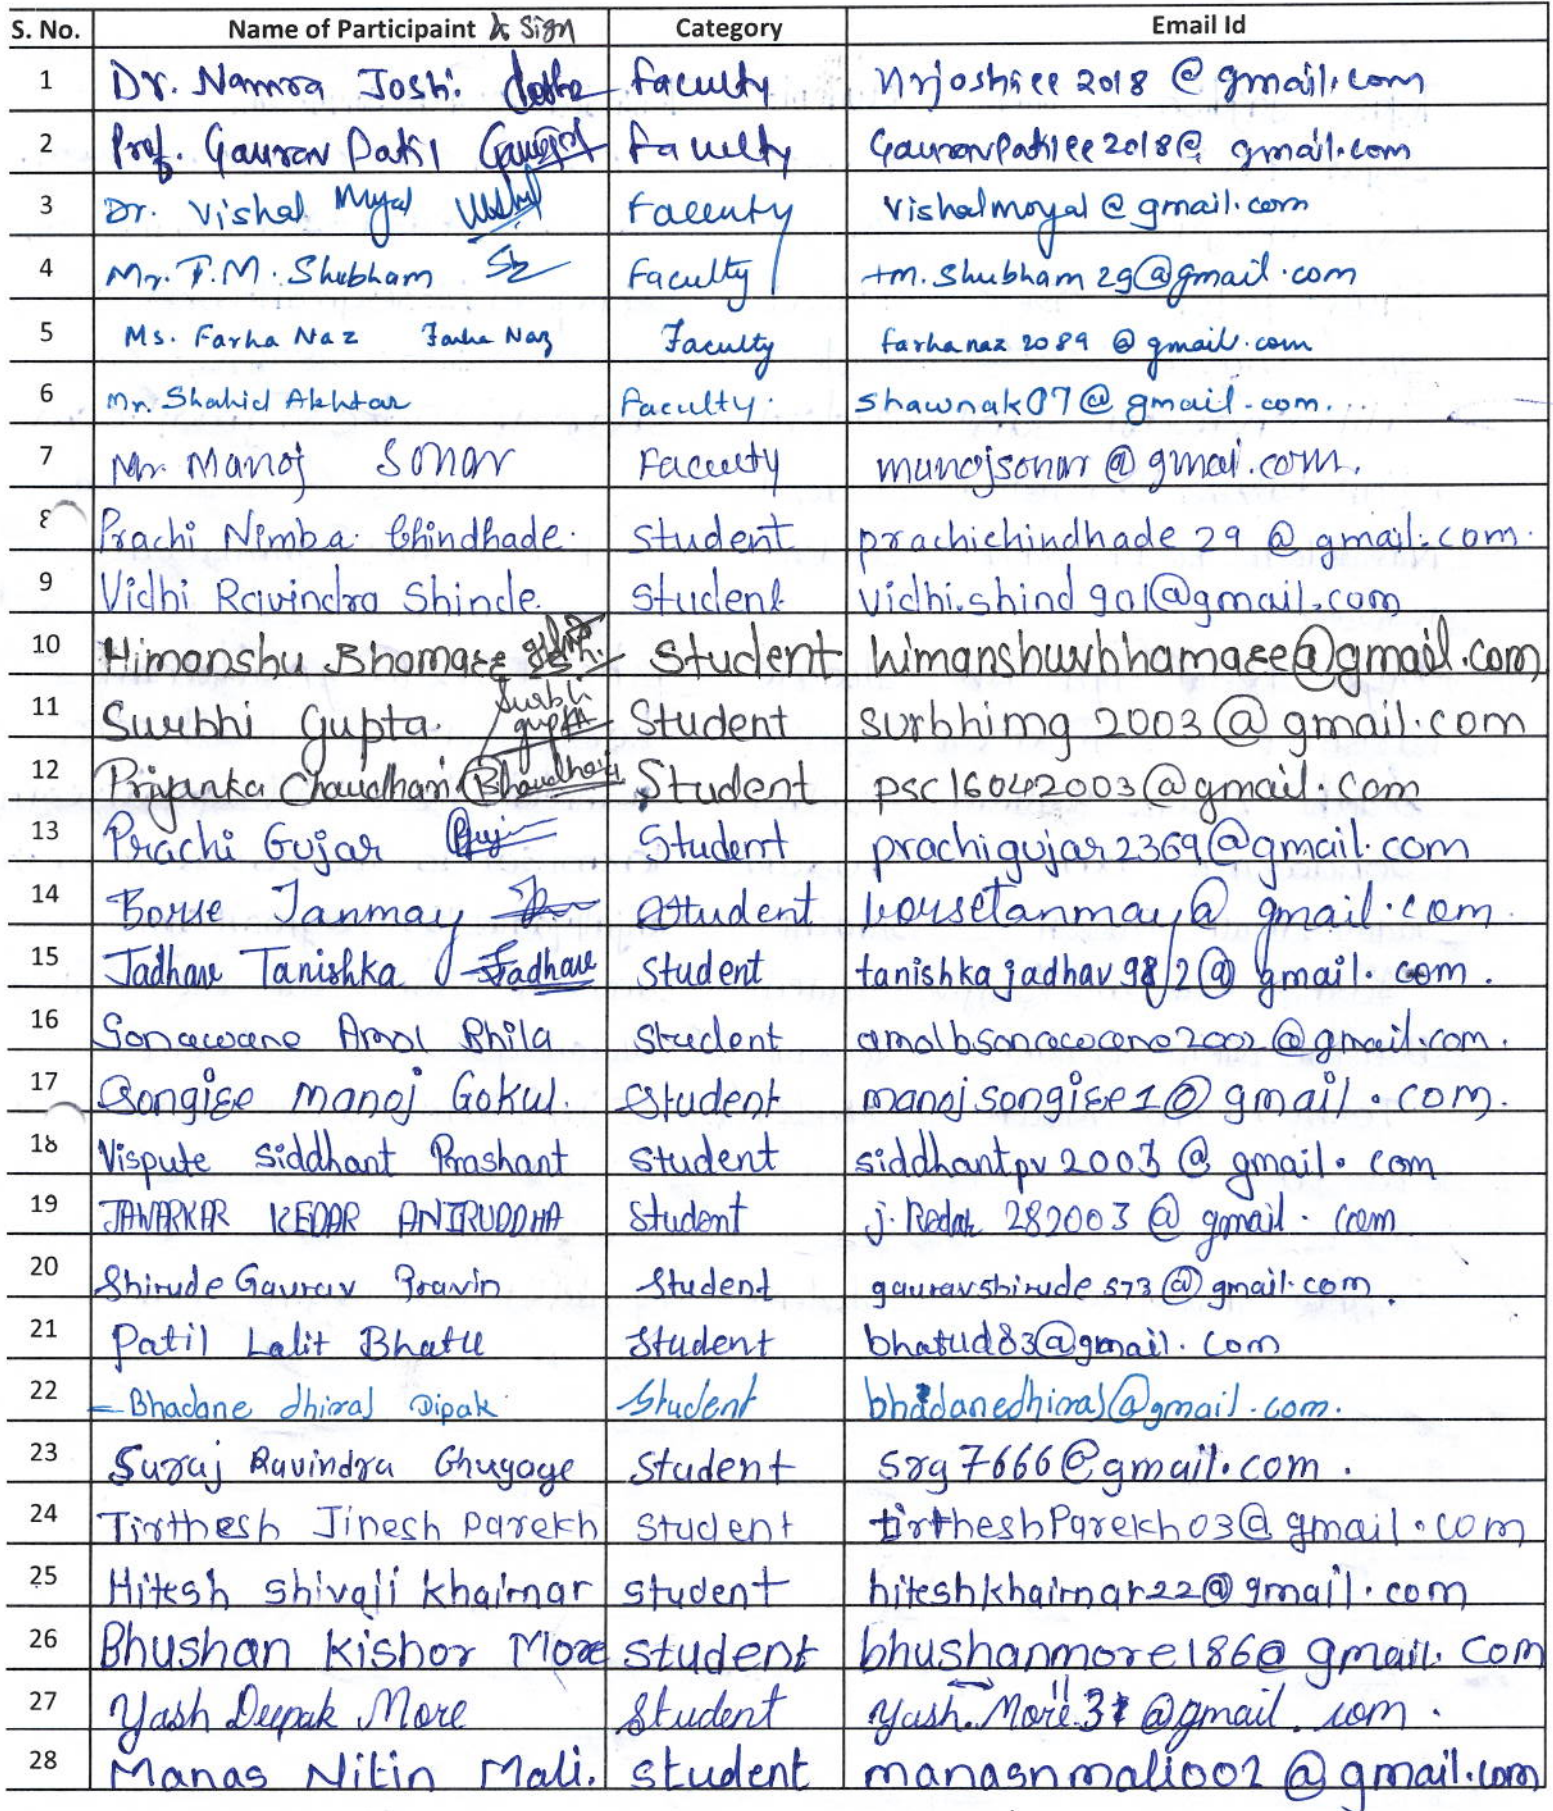 S. No. Name of Participaint & Sign Category Email Id
1 Dr. Namra Joshi. Joshi Faculty nrjoshiee2018@gmail.com
2 Prof. Gaurav Patil Faculty Gauravpatilee2018@gmail.com
3 Dr. Vishal Moyal Vishal Faculty vishalmoyal@gmail.com
4 Mr. T.M. Shubham Faculty tm.shubham29@gmail.com
5 Ms. Farha Naz Farha Naz Faculty farhanaz2089@gmail.com
6 Mr. Shahid Akhtar Faculty. shawnak07@gmail.com.
7 Mr. Manoj Sonar Faculty manojsonar@gmai.com.
8 Prachi Nimba Chindhade. Student prachichindhade29@gmail.com.
9 Vidhi Ravindra Shinde. Student vidhi.shind901@gmail.com
10 Himanshu Bhamare Student himanshuvbhamare@gmail.com
11 Surbhi Gupta. Surbhi gupta Student surbhimg2003@gmail.com
12 Priyanka Chaudhari Chaudhari Student psc16042003@gmail.com
13 Prachi Gujar Student prachigujar2369@gmail.com
14 Borse Tanmay Student borsetanmay@gmail.com.
15 Jadhav Tanishka Jadhav Student tanishkajadhav982@gmail.com.
16 Sonawane Amol Bhila Student amolbsonawane2002@gmail.com.
17 Songire Manoj Gokul. Student manojsongire1@gmail.com.
18 Vispute Siddhant Prashant Student siddhantpv2003@gmail.com
19 JAWARKAR KEDAR ANIRUDDHA Student j.kedar282003@gmail.com
20 Shirude Gaurav Pravin Student gauravshirude573@gmail.com.
21 Patil Lalit Bhatu Student bhatud83@gmail.com
22 Bhadane dhiraj Dipak Student bhadanedhiraj@gmail.com.
23 Suraj Ravindra Ghugage Student srg7666@gmail.com.
24 Tirthesh Jinesh Parekh Student tirtheshParekh03@gmail.com
25 Hitesh Shivaji Khairnar Student hiteshkhairnar22@gmail.com
26 Bhushan Kishor More Student bhushanmore186@gmail.com
27 Yash Deepak More Student yash.More.31@gmail.com.
28 Manas Nitin Mali. Student manasnmali002@gmail.com